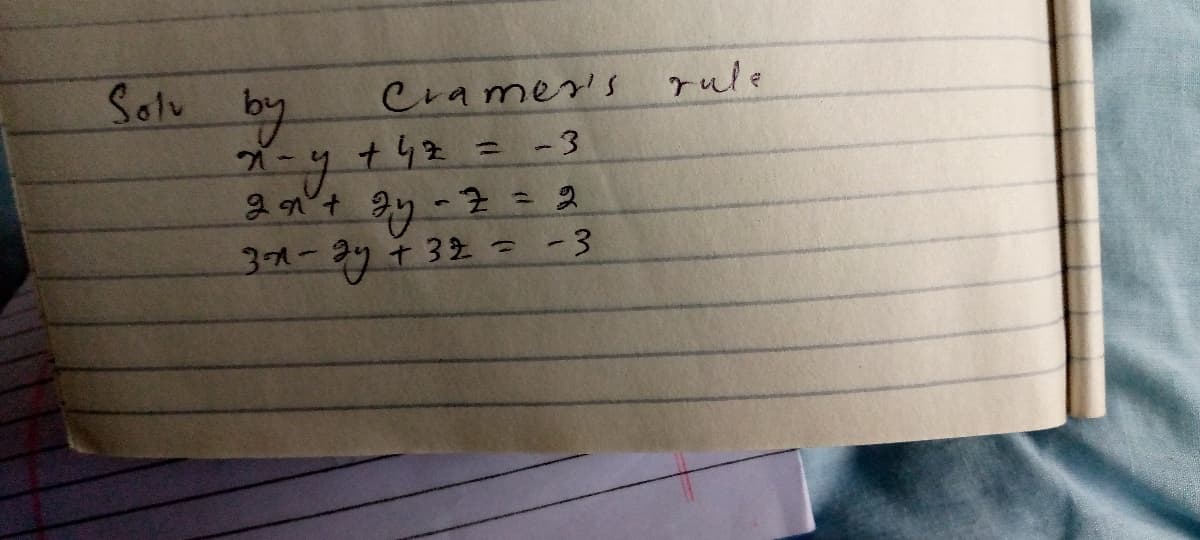 Solv by Cramer's rule
x - y + 4z = -3
2x + 2y - z = 2
3x - 2y + 3z = -3